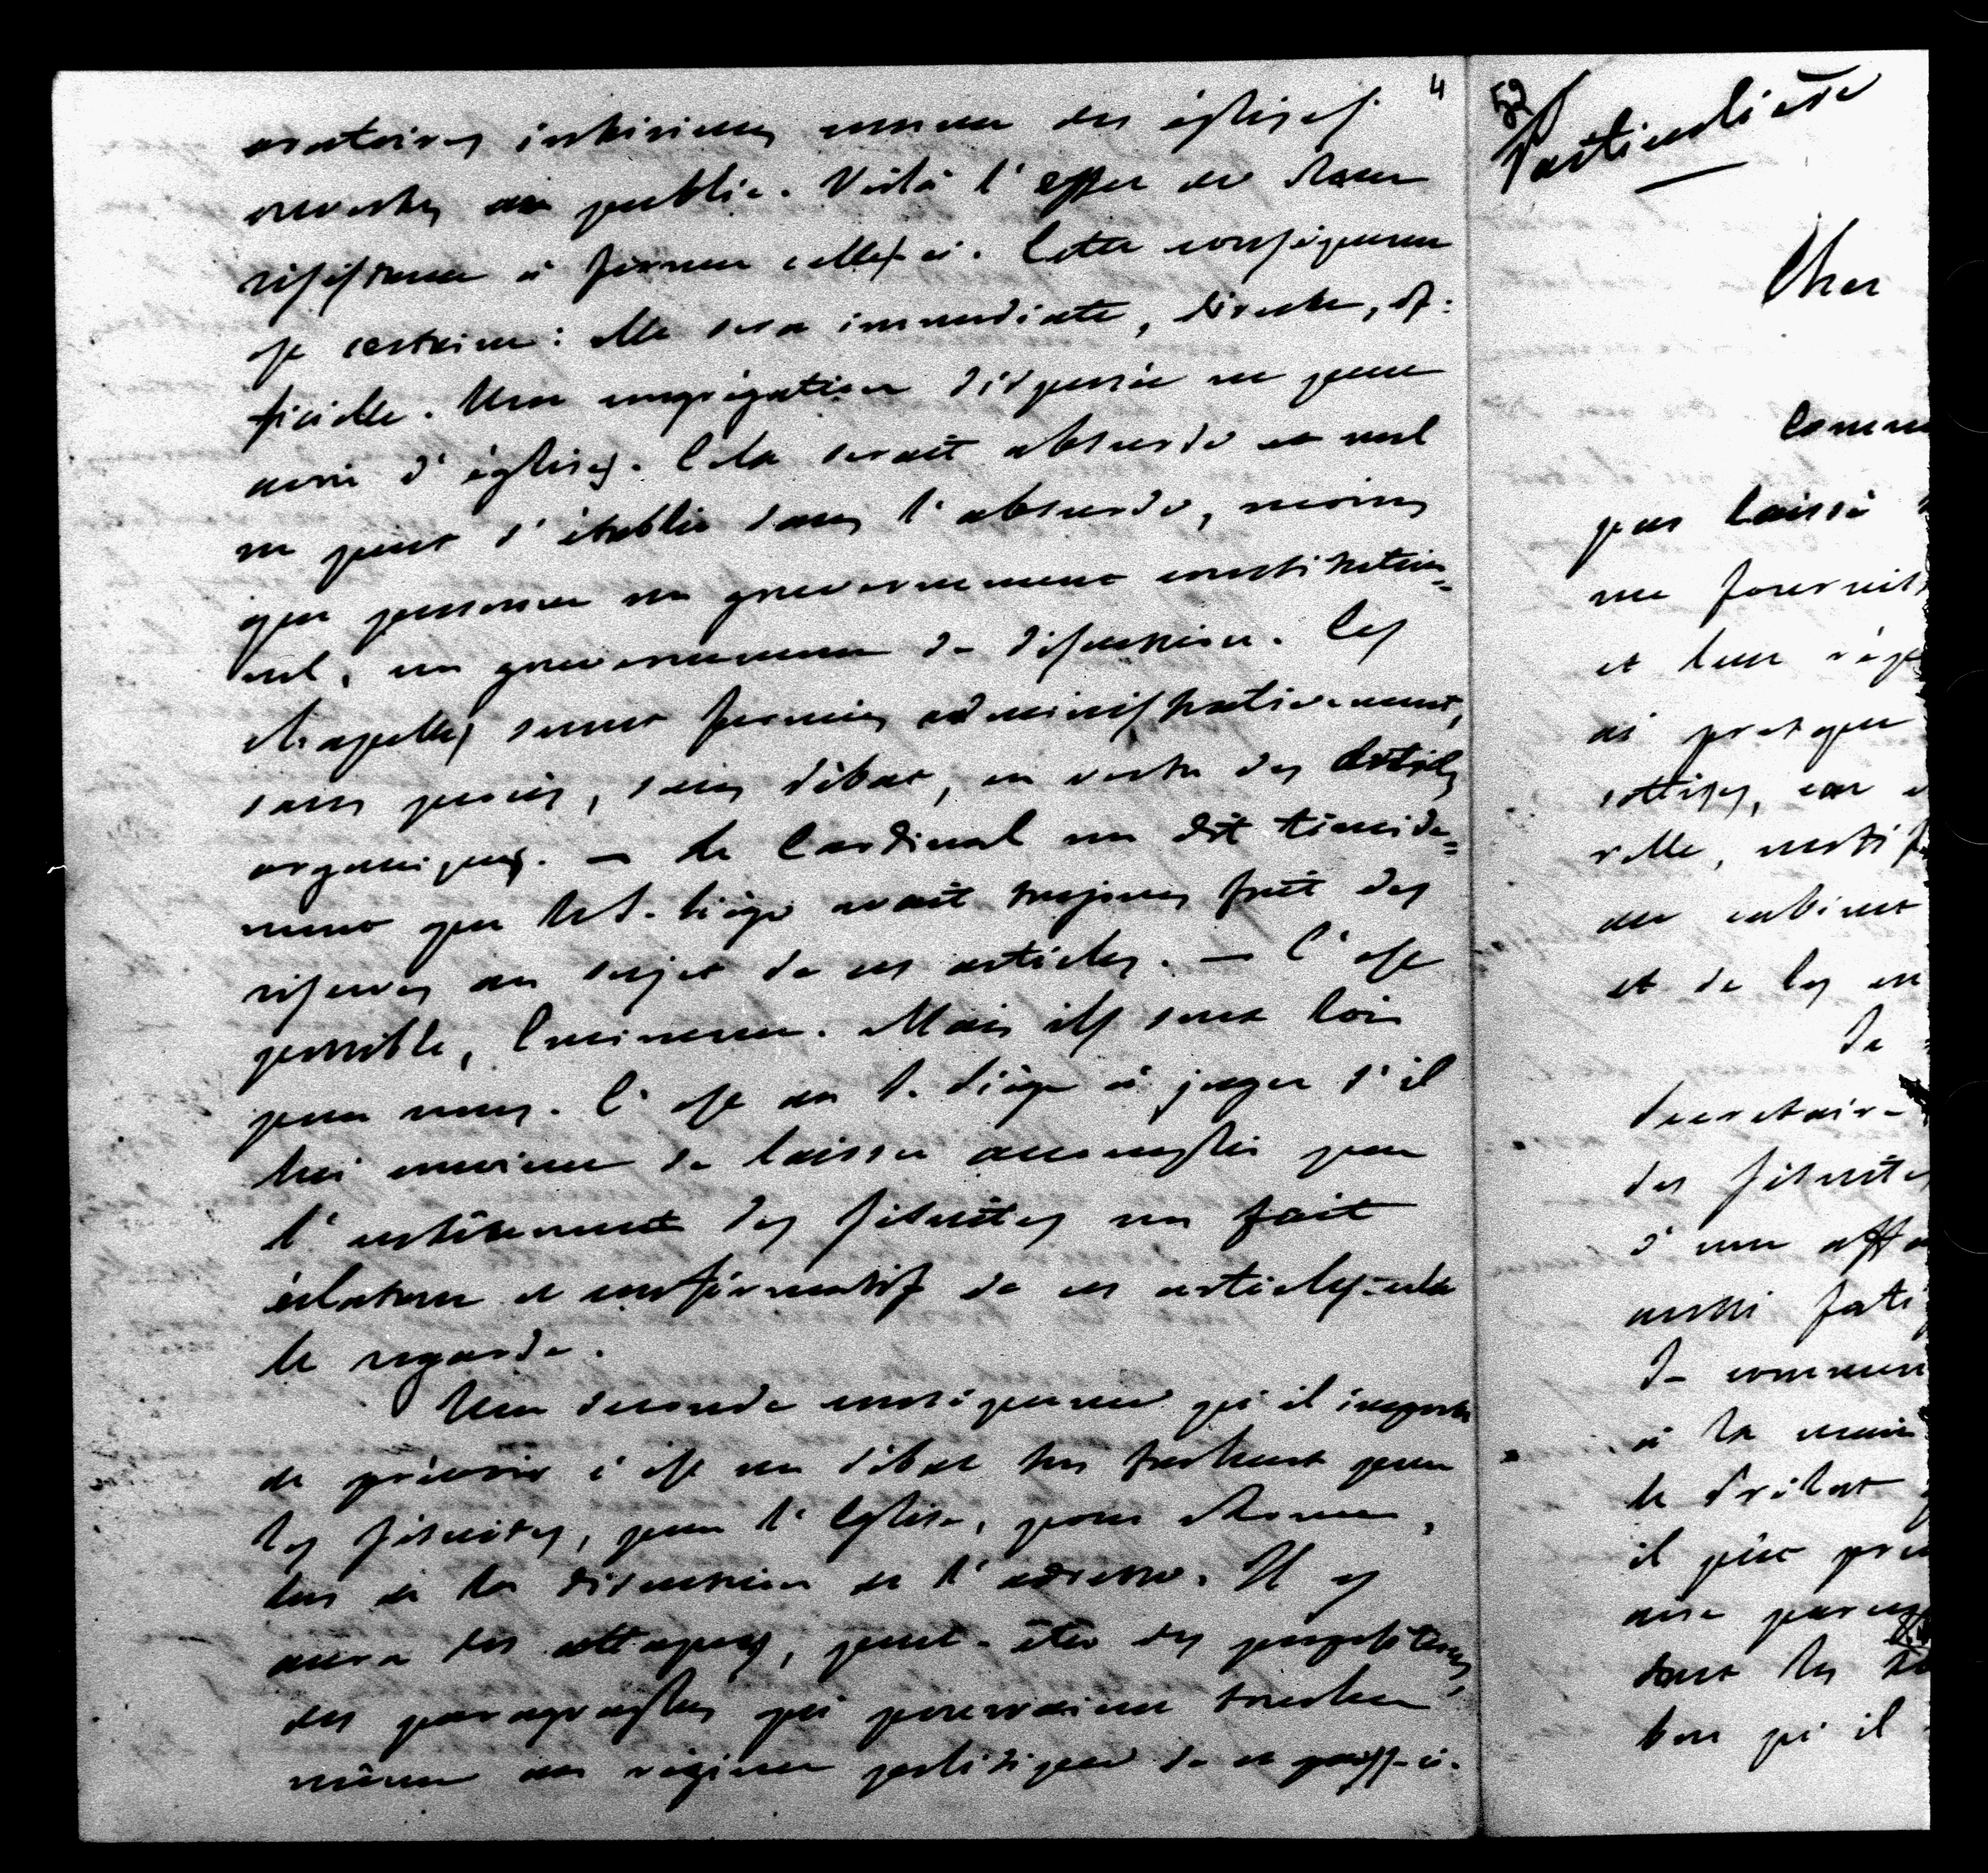 4
oratoires intérieurs comme des églises
ouvertes au public. Voilà l'effet de Leur
résistance à fermer celles-ci. Cette conséquence
est certaine: elle sera immédiate, directe, of:
ficielle. Une congrégation dispersée ne peut
avoir d'églises. Cela serait absurde et nul
ne peut s'établir dans l'absurde, moins
que personne un gouvernement constitution=
nel, un gouvernement de discussion. Les
chapelles seront fermées administrativement,
sans procès, sans débat, en vertu des Articles
organiques. — Le Cardinal me dit timide=
ment que le S. Siège avait toujours fait des
réserves au sujet de ces articles. — C'est
possible, Eminence. Mais ils sont lois
pour nous. C'est au S. Siège à juger s'il
lui convient de laisser accomplir par
l'entêtement des Jésuites un fait
éclatant et confirmatif de ces articles-cela
le regarde.
Une seconde conséquence qu'il importe
de prévoir c'est un débat très fâcheux pour
les Jésuites, pour l'Eglise, pour Rome,
lors de la discussion de l'adresse. Il y
aura des attaques, peut-être des
des paragraphes qui pourraient toucher
même au régime politique de ce pays-ci.
52
Particulière
Cher
Comme
pas laissé
me fournit
et leur
ai presque
sottises, car
relle,
du cabinet
et de les en
Je
Secrétaire
des Jésuites
d'une affa
aussi fati
Je commen
à la main
le Prélat
il pût pre
avec
dont les
bon qu'il